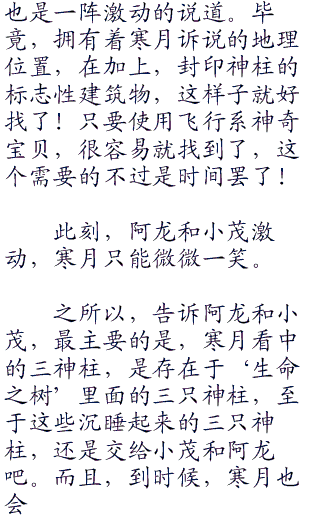 也是一阵激动的说道。毕
竟，拥有着寒月诉说的地理
位置，在加上，封印神柱的
标志性建筑物，这样子就好
找了！只要使用飞行系神奇
宝贝，很容易就找到了，这
个需要的不过是时间罢了！
此刻，阿龙和小茂激
动，寒月只能微微一笑。
之所以，告诉阿龙和小
茂，最主要的是，寒月看中
的三神柱，是存在于‘生命
之树’里面的三只神柱，至
于这些沉睡起来的三只神
柱，还是交给小茂和阿龙
吧。而且，到时候，寒月也
会